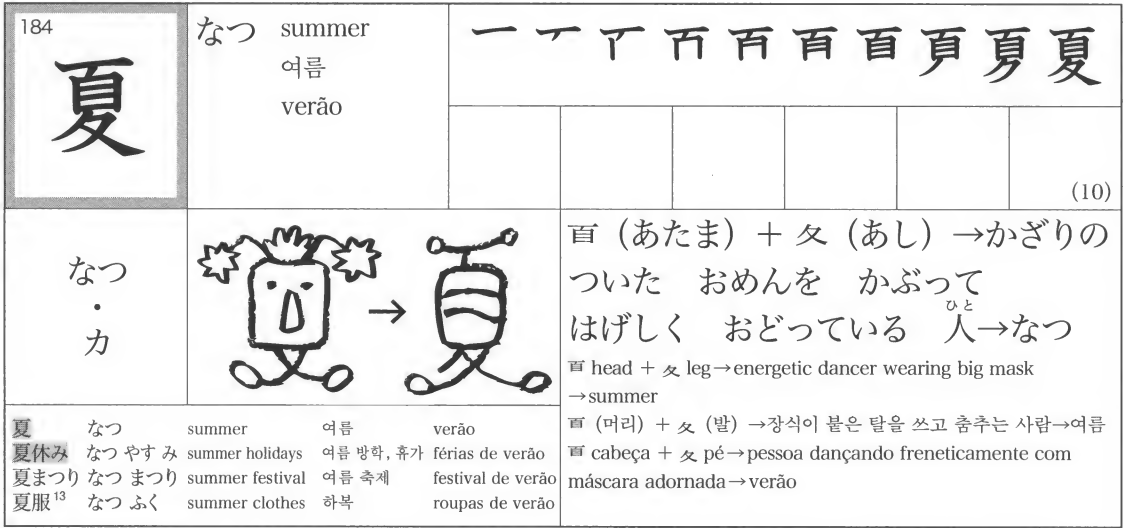 184
夏
なつ summer
여름
verão
夏
(10)
なつ
・
カ
𦣻（あたま）＋夂（あし）→かざりの
ついた　おめんを　かぶって
はげしく　おどっている　人→なつ
ひと
𦣻 head＋夂 leg→energetic dancer wearing big mask
→summer
𦣻（머리）＋夂（발）→장식이 붙은 탈을 쓰고 춤추는 사람→여름
𦣻 cabeça＋夂 pé→pessoa dançando freneticamente com
máscara adornada→verão
夏 なつ summer 여름 verão
夏休み なつ やす み summer holidays 여름 방학, 휴가 férias de verão
夏まつり なつ まつり summer festival 여름 축제 festival de verão
夏服13 なつ ふく summer clothes 하복 roupas de verão